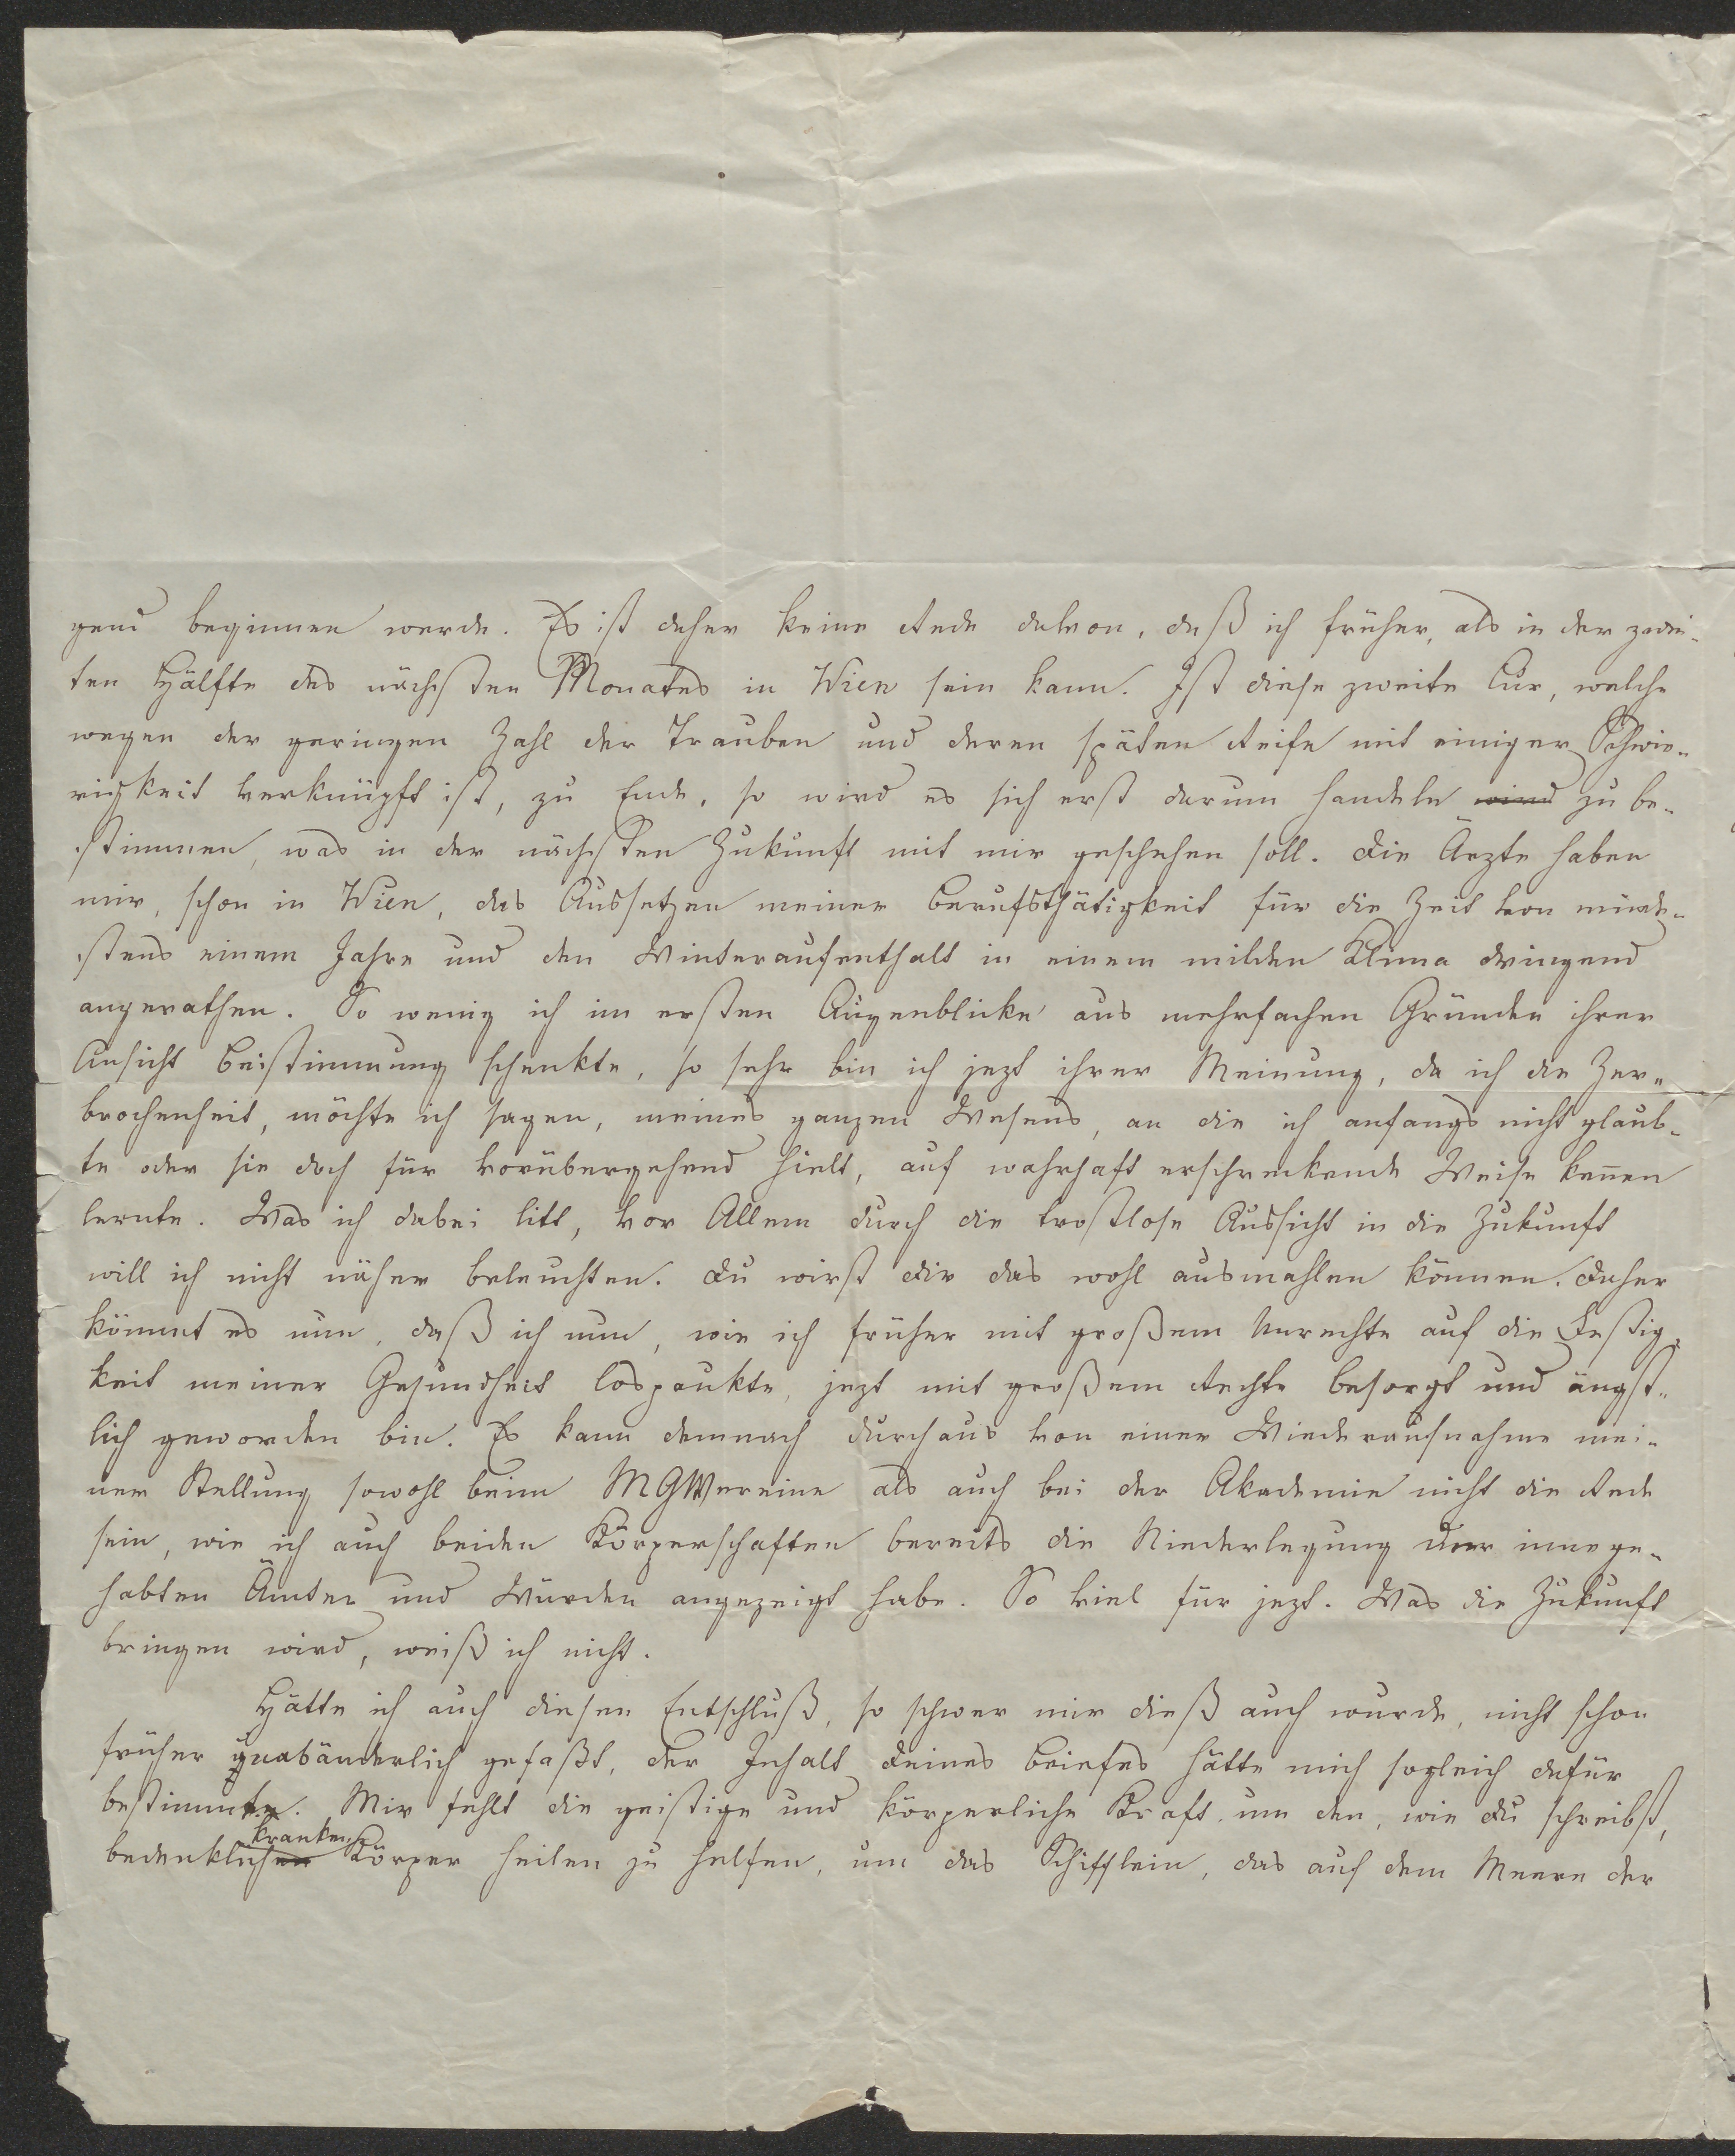 gend beginnen werde. Es ist daher keine Rede davon, daß ich früher, als in der zwei-
ten Hälfte des nächsten Monates in Wien sein kann. Ist diese zweite Cur, welche
wegen der geringen Zahl der Trauben und deren späten Reife mit einiger Schwie-
rigkeit verknüpft ist, zu Ende, so wird es sich erst darum handeln wird zu be-
stimmen, was in der nächsten Zukunft mit mir geschehen soll. Die Ärzte haben
mir, schon in Wien, das Aussetzen meiner Berufsthätigkeit für die Zeit von minde-
stens einem Jahre und den Winteraufenthalt in einem milden Klima dringend
angerathen. So wenig ich im ersten Augenblicke aus mehrfachen Gründen ihrer
Ansicht Beistimmung schenkte, so sehr bin ich jezt ihrer Meinung, da ich die Zer-
brochenheit, möchte ich sagen, meines ganzen Wesens, an die ich anfangs nicht glaub-
te oder sie doch für vorübergehend hielt, auf wahrhaft erschreckende Weise kennen
lernte. Was ich dabei litt, vor Allem durch die trostlose Aussicht in die Zukunft
will ich nicht näher beleuchten. Du wirst Dir das wohl ausmahlen können. Daher
kömmt es nun, daß ich nun, wie ich früher mit großem Unrechte auf die Festig-
keit meiner Gesundheit lospaukte, jezt mit großem Rechte besorgt und ängst-
lich geworden bin. Es kann demnach durchaus von einer Wiederaufnahme mei-
ner Stellung sowohl beim MGVereine als auch bei der Akademie nicht die Rede
sein, wie ich auch beiden Körperschaften bereits die Niederlegung der innege-
habten Ämter und Würden angezeigt habe. So viel für jezt. Was die Zukunft
bringen wird, weiß ich nicht.
Hätte ich auch diesen Entschluß, so schwer mir dieß auch wurde, nicht schon
früher unabänderlich gefaßt, der Inhalt Deines Briefes hätte mich sogleich dafür
bestimmt. Mir fehlt die geistige und körperliche Kraft um den, wie Du schreibst,
kranken
bedenklichen Körper heilen zu helfen, um das Schifflein, das auf dem Meere der